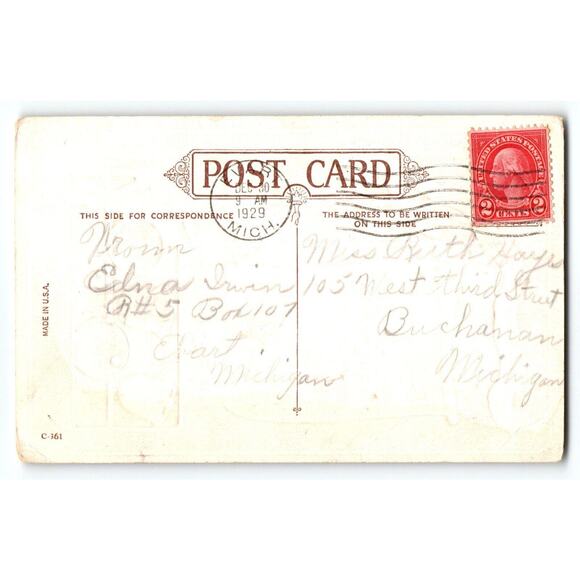 POST CARD
UNITED STATES POSTAGE
2 CENTS 2
DEC 30
9 AM
1929
MICH.
THIS SIDE FOR CORRESPONDENCE
THE ADDRESS TO BE WRITTEN
ON THIS SIDE
From
Edna Irwin
R#5 Box 107
Evart
Michigan
Miss Ruth Hayes
105 West third Street
Buchanan
Michigan
MADE IN U.S.A.
C-361